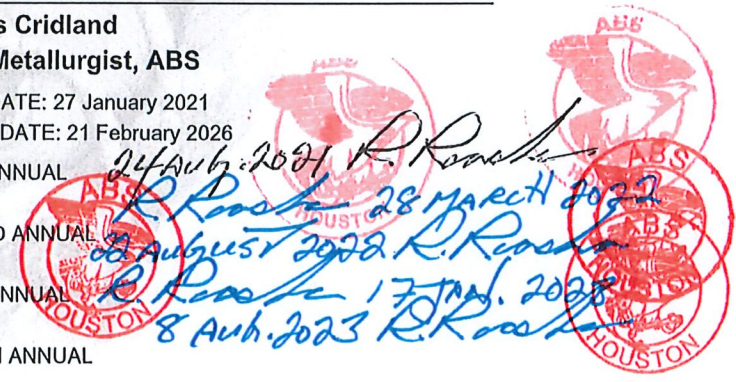 s Cridland
Metallurgist, ABS
ATE: 27 January 2021
DATE: 21 February 2026
NNUAL 24 Aug. 2021 R.
R. 28 MARCH 2022
D ANNUAL 22 AUGUST 2022 R.
NNUAL R. 17 JAN. 2023
8 Aug. 2023 R.
H ANNUAL
ABS
HOUSTON
ABS
ABS
HOUSTON
ABS
ABS
HOUSTON